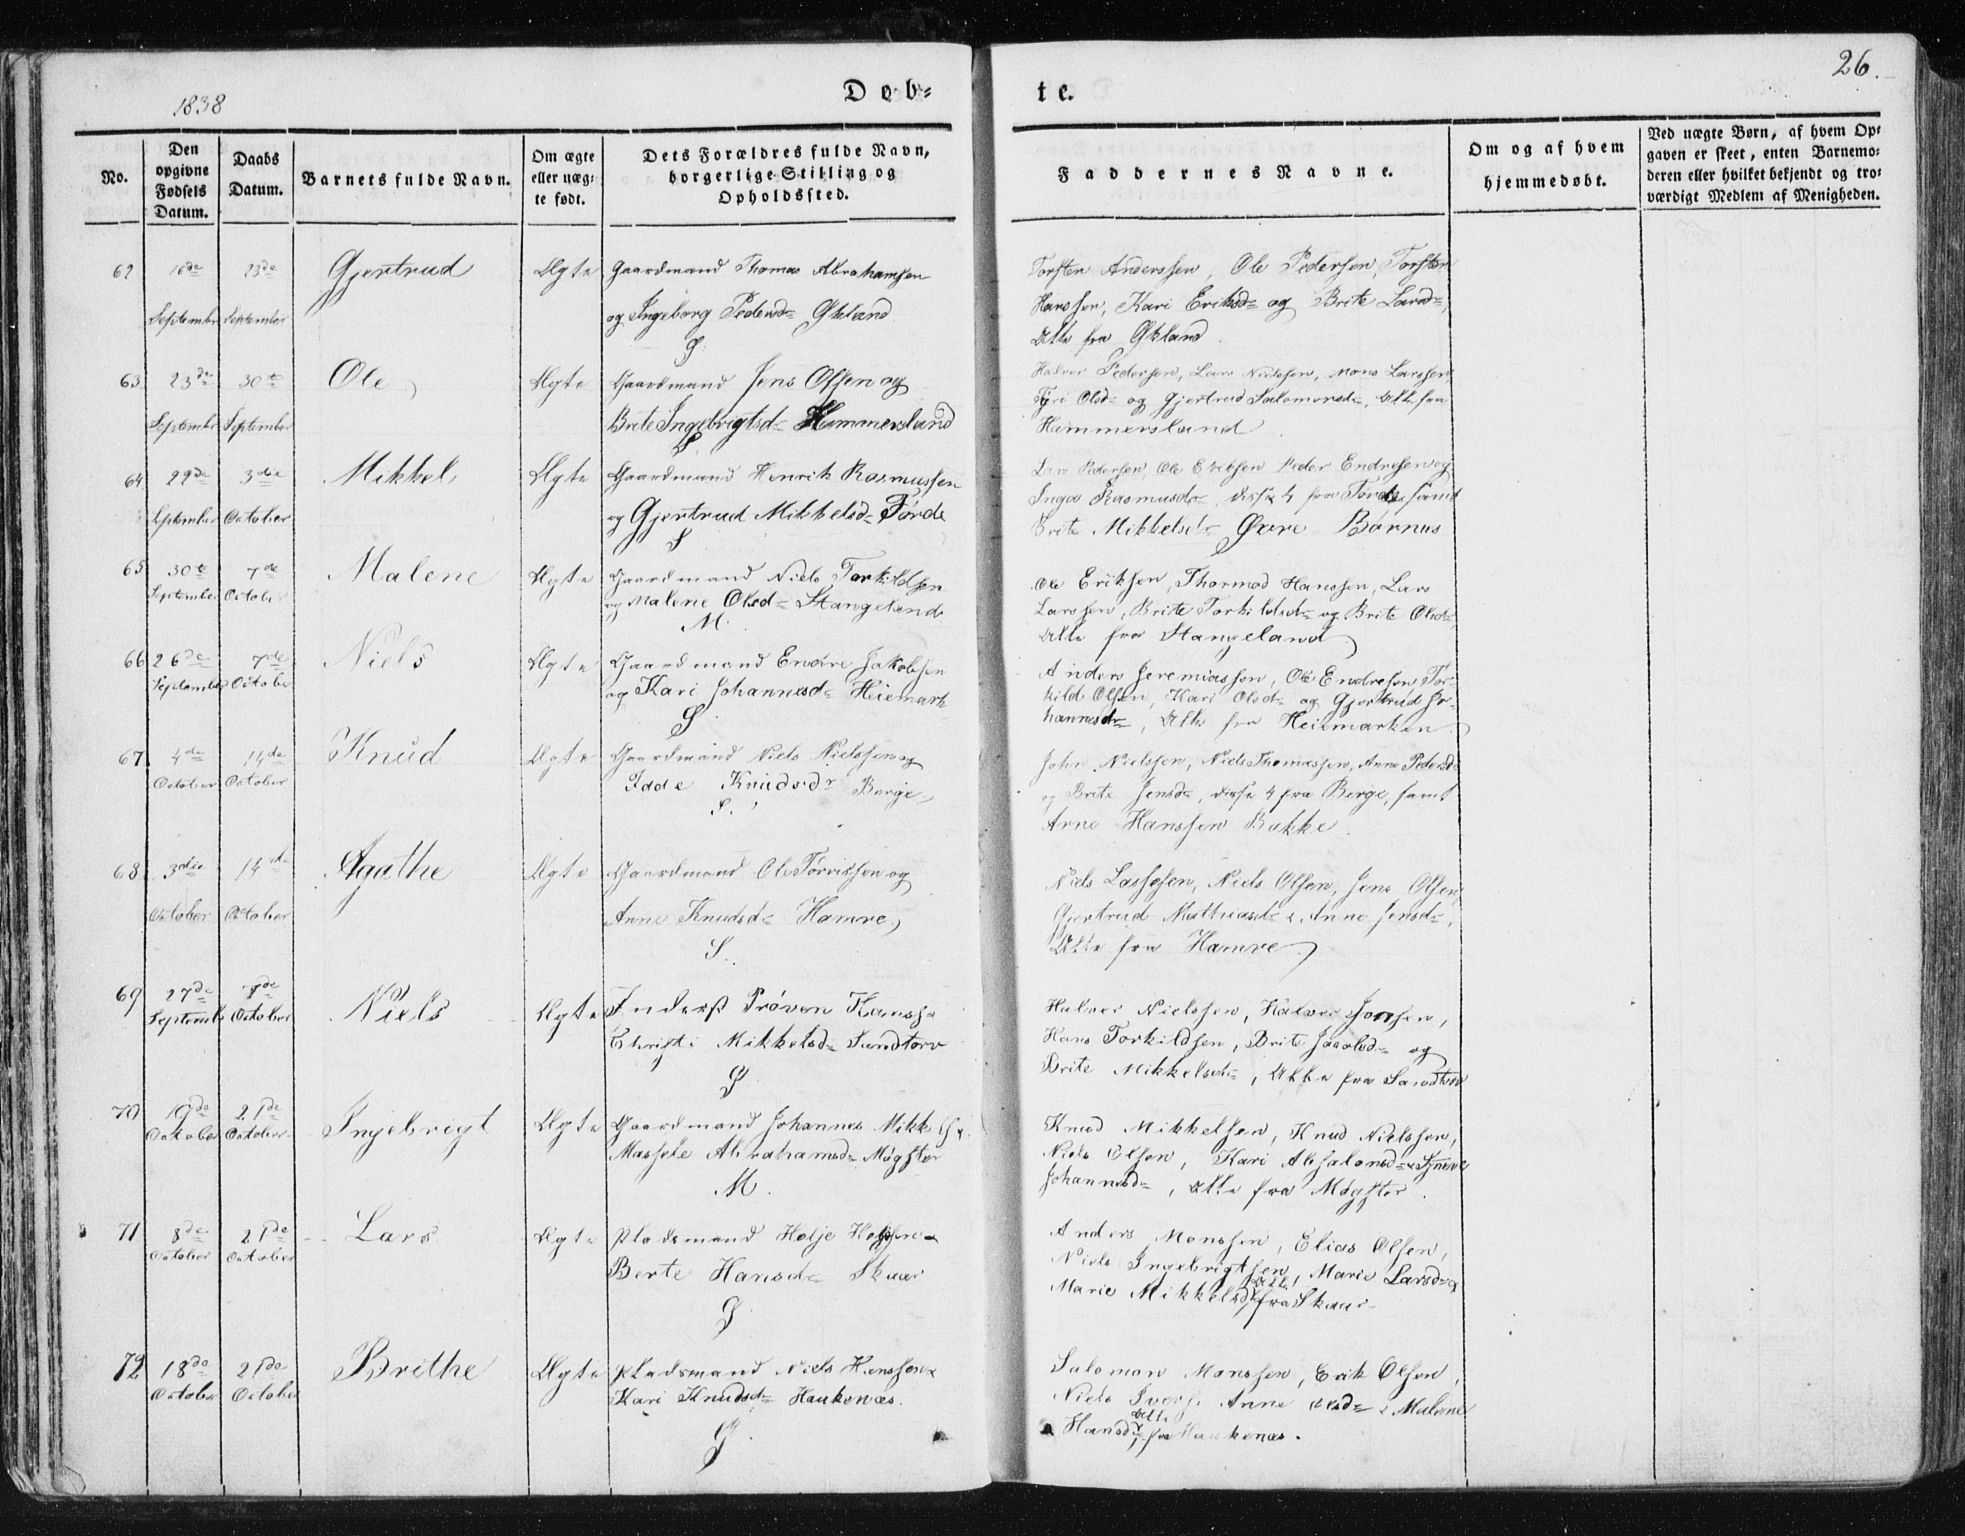 1838
Døb=
te.
26.
No.
Den
opgivne
Fødsels
Datum.
Daabs
Datum.
Barnets fulde Navn.
Om ægte
eller uæg=
te født.
Dets Forældres fulde Navn,
borgerlige Stilling og
Opholdssted.
Faddernes Navne.
Om og af hvem
hjemmedøbt.
Ved uægte Børn, af hvem Op=
gaven er skeet, enten Barnemo=
deren eller hvilket bekjendt og tro=
værdigt Medlem af Menigheden.
62 16de September 23de September Gjertrud Ægte
Gaardmand Thomas Abrahamsen
og Ingeborg Pedersd= Økland
S
Torsten Anderssen, Ole Pedersen, Torsten
Hanssen, Kari Eriksd= og Brite Larsd=,
Alle fra Økland.
63 23de September 30te September Ole Ægte
Gaardmand Jens Olsen og
Brite Ingebrigtsd= Hammersland
S
Halvor Pedersen, Lars Nielssen, Mons Larssen,
Tyri Olsd= og Gjertrud Salomonsd=, Alle fra
Hammersland.
64 29de September 3die October Mikkel Ægte
Gaardmand Henrik Rasmussen
og Gjertrud Mikkelsd= Førde
S
Lars Pedersen, Ole Eriksen Peder Endresen og
Inga Rasmusd=, disse 4 fra Førde, samt
Brite Mikkelsd= Øvre Børnus
65 30te September 7de October Malene Ægte
Gaardmand Niels Torkildsen
og Malene Olsd= Stangeland
M.
Ole Eriksen, Thormod Hanssen, Lars
Larssen, Brite Torkildsd= og Brite Olsd=,
Alle fra Stangeland
66 26de September 7de October Niels Ægte
Gaardmand Endre Jakobsen
og Kari Johannesd= Heiemark
S
Anders Jeremiassen, Ole Endresen, Tor=
kild Olsen, Kari Olsd= og Gjertrud Jo=
hannesd=, Alle fra Heiemarken.
67. 4de October 14de October Knud Ægte
Gaardmand Niels Nielssen og
Knudsdr Berge,
S.
John Nielssen, Niels Thomassen, Anne Pedersd=
og Brite Jensd=, disse 4 fra Berge, samt
Arne Hanssen Bakke.
68 3die October 14de October Agathe Ægte
Gaardmand Ole Tørrissen og
Anne Knudsd= Hamre
S.
Niels Lassesen, Niels Olsen, Jens Olsen,
Gjertrud Mathiasd= & Anne Jensd=,
Alle fra Hamre
69 27de September 7de October Niels Ægte
Inderst Prøven Hanss&
Christi Mikkelsd= Sandtorv
S
Halvor Nielssen, Halvor Jonsen,
Hans Torkildsen, Brite Jacobsd= og
Brite Mikkelsd=, Alle fra Sandtorv
70 19de October 21de October Ingebrigt Ægte
Gaardmand Johannes Mikkels&
Massele Abrahamsd= Møgster
M.
Knud Mikkelsen, Knud Nielssen,
Niels Olsen, Kari Absalonsd= & Synneve
Johannesd=, alle fra Møgster.
71 8de October 21de October Lars Ægte
Pladsmand Helje &
Berte Hansd= Skaar
S
Anders Monssen, Elias Olsen,
Niels Ingebrigtsen, Marie Larsd= &
Marie Mikkelsd, Alle fra Skaar.
72 18de October 21de October Brithe Ægte
Pladsmand Niels Hanssen &
Kari Knudsd= Haukenæs.
S
Salomon Monssen, Erik Olsen,
Niels Ivers. Anne Olsd= & Malene
Hansdr, Alle fra Haukenæs.